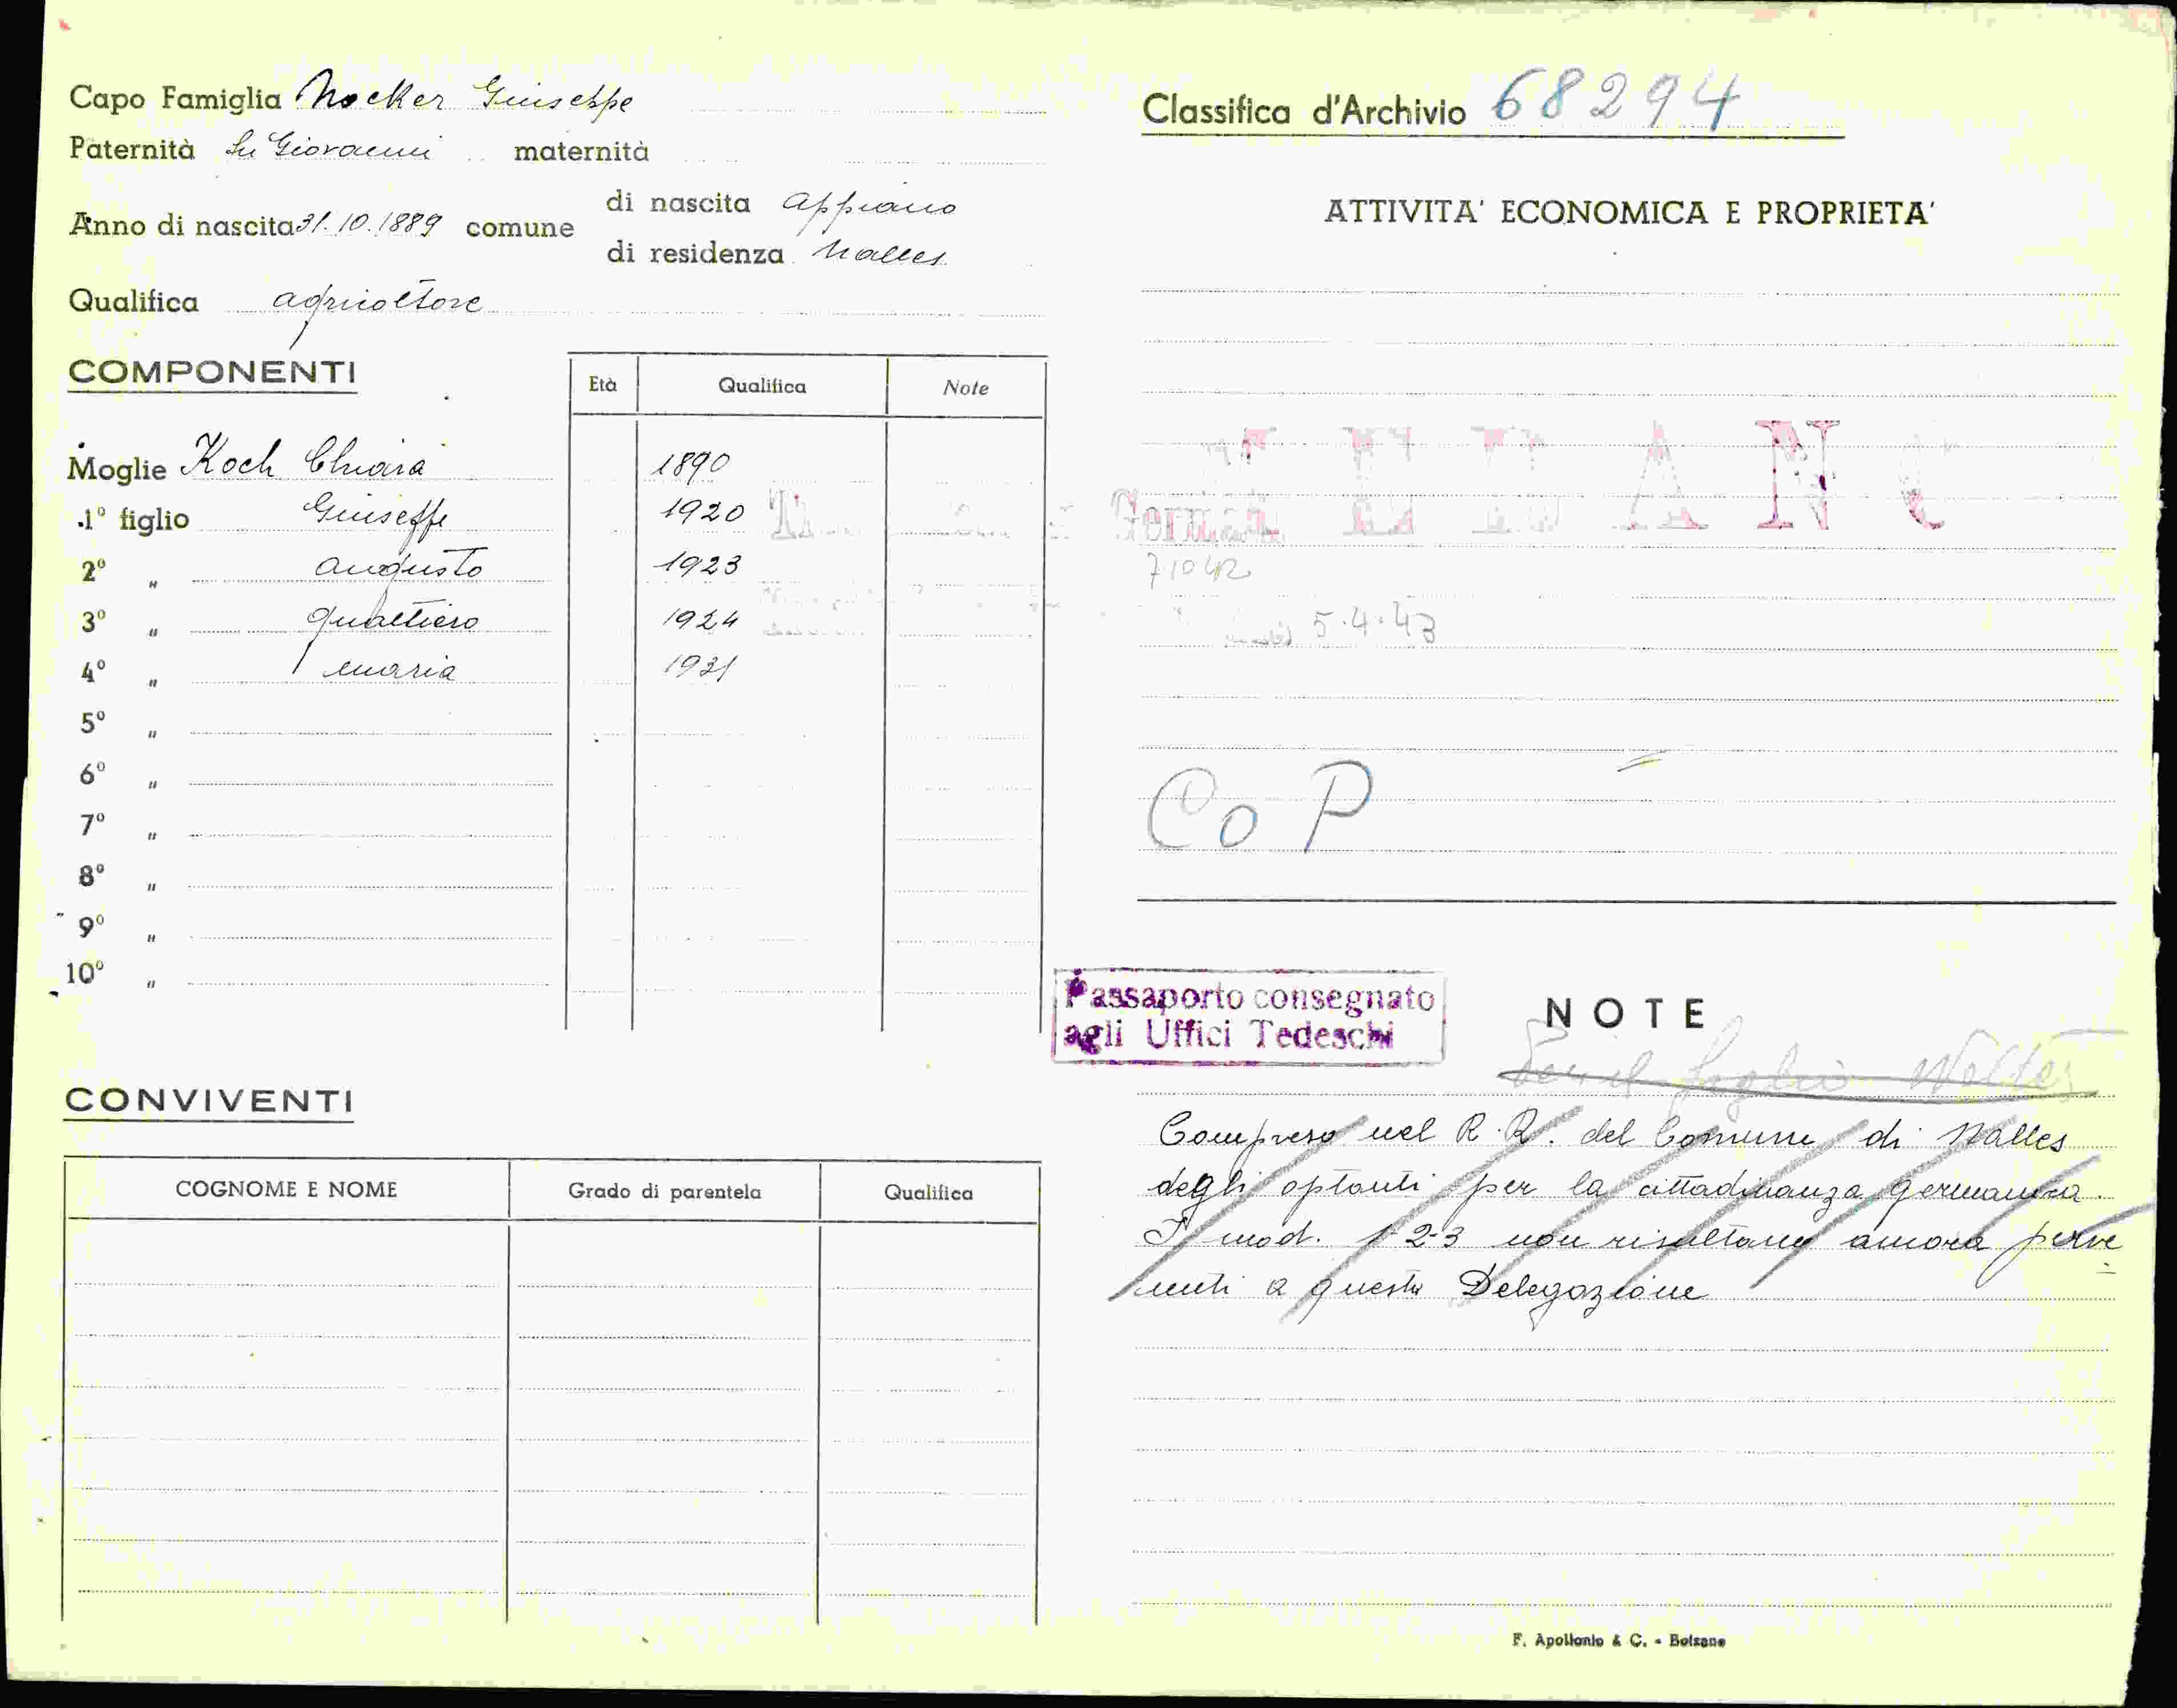 Capo Famiglia Nocker Giuseppe
Paternità fu Giovanni maternità
Anno di nascita 31.10.1889 comune
di nascita Appiano
di residenza Nalles
Qualifica agricoltore
COMPONENTI
Età Qualifica Note
Moglie Koch Chiara 1890
1º figlio Giuseppe 1920
2º " Augusto 1923
3º " Gualtiero 1924
4º " Maria 1931
5º "
6º "
7º "
8º "
9º "
10º "
CONVIVENTI
COGNOME E NOME Grado di parentela Qualifica
Classifica d'Archivio 68294
ATTIVITA' ECONOMICA E PROPRIETA'
7.10.42
5.4.43
Co P
Passaporto consegnato
agli Uffici Tedeschi
NOTE
foglio
Compreso nel R.R. del Comune di Nalles
degli optanti per la cittadinanza germanica.
I mod. 1-2-3 non risultano ancora perve
nuti a questa Delegazione
F. Apollonio & C. - Bolzano